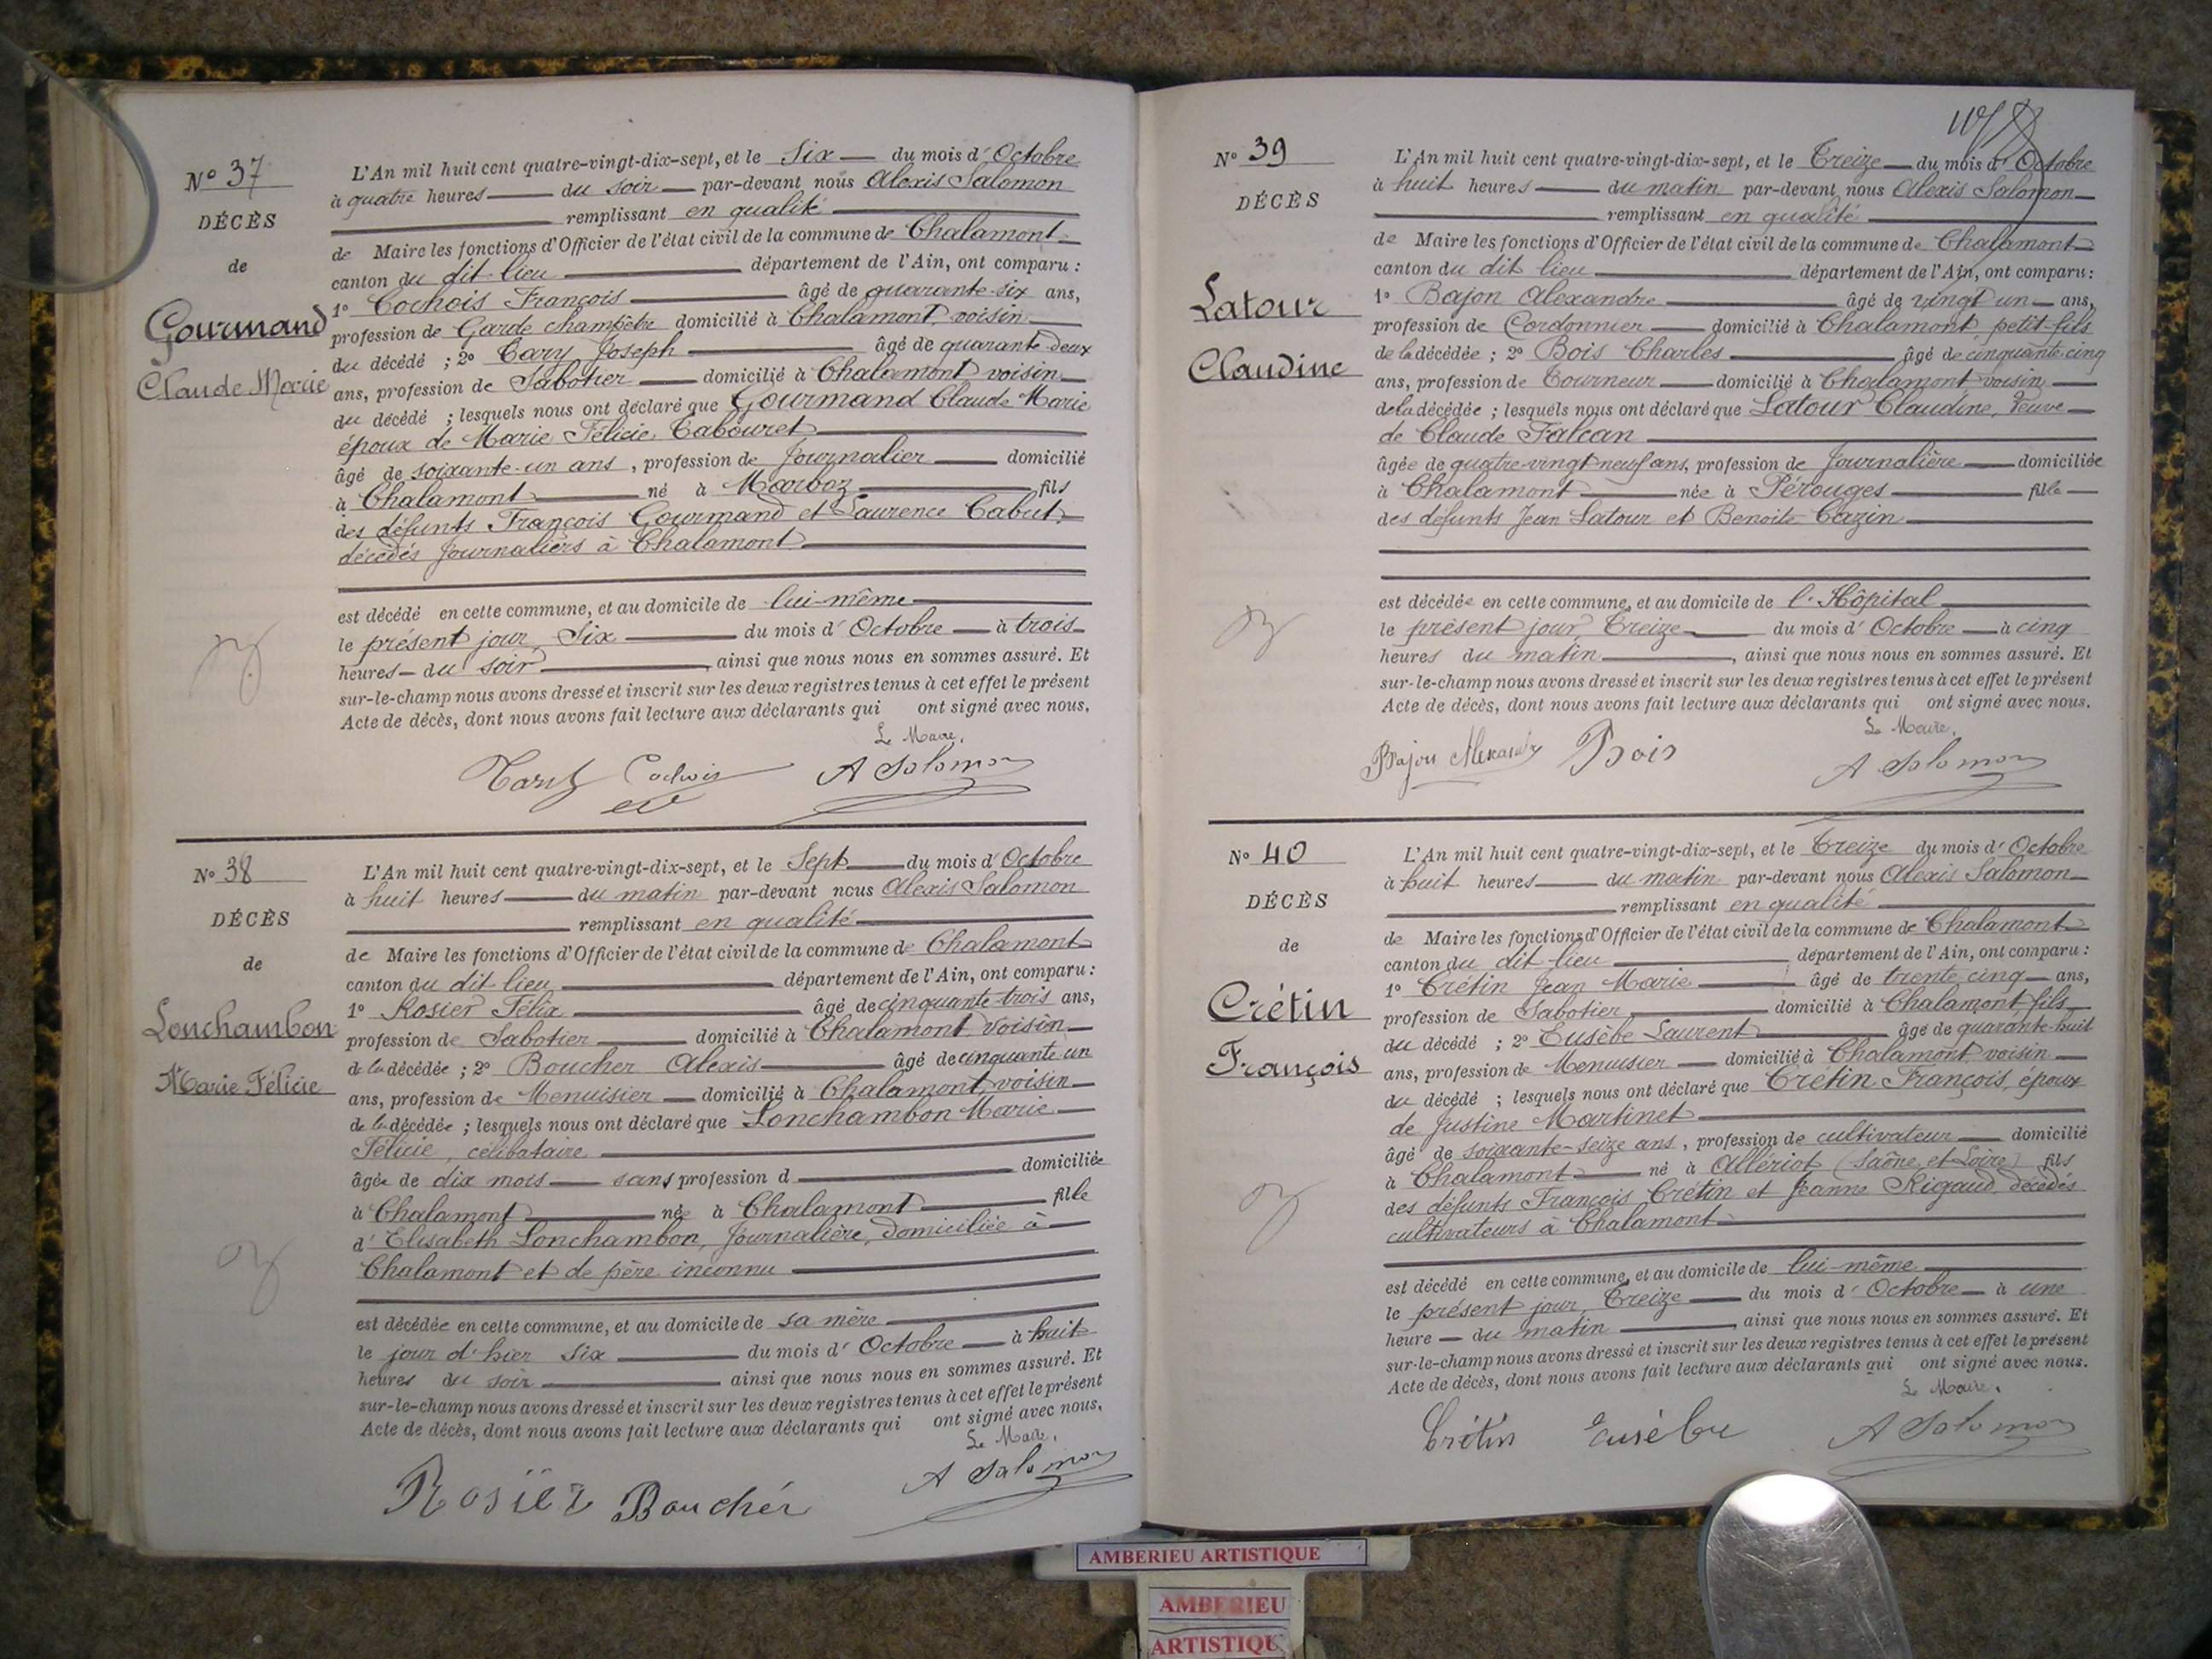 N° 37
DÉCÈS
de
Gourmand
Claude Marie
L'An mil huit cent quatre-vingt-dix-sept, et le Six du mois d'Octobre
à quatre heures du soir par-devant nous Alexis Salomon
remplissant en qualité
de Maire les fonctions d'Officier de l'état civil de la commune de Chalamont
canton du dit lieu département de l'Ain, ont comparu :
1° Cochois François âgé de quarante-six ans,
profession de Garde champêtre domicilié à Chalamont, voisin
du décédé ; 2° Tary Joseph âgé de quarante-deux
ans, profession de Sabotier domicilié à Chalamont voisin
du décédé ; lesquels nous ont déclaré que Gourmand Claude Marie
époux de Marie Félicie Tabouret
âgé de soixante-un ans, profession de Journalier domicilié
à Chalamont né à Marboz fils
des défunts François Gourmand et Laurence Cabut,
décédés journaliers à Chalamont
est décédé en cette commune, et au domicile de lui-même
le présent jour, Six du mois d'Octobre à trois
heures du soir, ainsi que nous nous en sommes assuré. Et
sur-le-champ nous avons dressé et inscrit sur les deux registres tenus à cet effet le présent
Acte de décès, dont nous avons fait lecture aux déclarants qui ont signé avec nous.
Le Maire,
Tary Cochois A Salomon
N° 38
DÉCÈS
de
Lonchambon
Marie Félicie
L'An mil huit cent quatre-vingt-dix-sept, et le Sept du mois d'Octobre
à huit heures du matin par-devant nous Alexis Salomon
remplissant en qualité
de Maire les fonctions d'Officier de l'état civil de la commune de Chalamont
canton du dit lieu département de l'Ain, ont comparu :
1° Rosier Félix âgé de cinquante-trois ans,
profession de Sabotier domicilié à Chalamont voisin
de la décédée ; 2° Boucher Alexis âgé de cinquante un
ans, profession de Menuisier domicilié à Chalamont, voisin
de la décédée ; lesquels nous ont déclaré que Lonchambon Marie
Félicie, célibataire
âgée de dix mois sans profession d domiciliée
à Chalamont née à Chalamont fille
d'Elisabeth Lonchambon, Journalière, domiciliée à
Chalamont et de père inconnu
est décédée en cette commune, et au domicile de sa mère
le jour d'hier Six du mois d'Octobre à huit
heures du soir ainsi que nous nous en sommes assuré. Et
sur-le-champ nous avons dressé et inscrit sur les deux registres tenus à cet effet le présent
Acte de décès, dont nous avons fait lecture aux déclarants qui ont signé avec nous.
Le Maire,
Rosier Boucher A Salomon
N° 39
DÉCÈS
Latour
Claudine
L'An mil huit cent quatre-vingt-dix-sept, et le Treize du mois d'Octobre
à huit heures du matin par-devant nous Alexis Salomon
remplissant en qualité
de Maire les fonctions d'Officier de l'état civil de la commune de Chalamont
canton du dit lieu département de l'Ain, ont comparu :
1° Bajon Alexandre âgé de vingt un ans,
profession de Cordonnier domicilié à Chalamont petit-fils
de la décédée ; 2° Bois Charles âgé de cinquante-cinq
ans, profession de Tourneur domicilié à Chalamont, voisin
de la décédée ; lesquels nous ont déclaré que Latour Claudine, Veuve
de Claude Falcan
âgée de quatre-vingt-neuf ans, profession de Journalière domiciliée
à Chalamont née à Pérouges fille
des défunts Jean Latour et Benoite Cazin
est décédée en cette commune, et au domicile de l'Hôpital
le présent jour, Treize du mois d'Octobre à cinq
heures du matin, ainsi que nous nous en sommes assuré. Et
sur-le-champ nous avons dressé et inscrit sur les deux registres tenus à cet effet le présent
Acte de décès, dont nous avons fait lecture aux déclarants qui ont signé avec nous.
Le Maire,
Bajon Alexandre Bois A Salomon
N° 40
DÉCÈS
de
Crétin
François
L'An mil huit cent quatre-vingt-dix-sept, et le Treize du mois d'Octobre
à huit heures du matin par-devant nous Alexis Salomon
remplissant en qualité
de Maire les fonctions d'Officier de l'état civil de la commune de Chalamont
canton du dit lieu département de l'Ain, ont comparu :
1° Crétin Jean Marie âgé de trente-cinq ans,
profession de Sabotier domicilié à Chalamont, fils
du décédé ; 2° Eusèbe Laurent âgé de quarante-huit
ans, profession de Menuisier domicilié à Chalamont voisin
du décédé ; lesquels nous ont déclaré que Crétin François, époux
de Justine Martinet
âgé de soixante-seize ans, profession de cultivateur domicilié
à Chalamont né à Allériot (Saône et Loire) fils
des défunts François Crétin et Jeanne Rigaud, décédés
cultivateurs à Chalamont
est décédé en cette commune, et au domicile de lui-même
le présent jour, Treize du mois d'Octobre à une
heure du matin, ainsi que nous nous en sommes assuré. Et
sur-le-champ nous avons dressé et inscrit sur les deux registres tenus à cet effet le présent
Acte de décès, dont nous avons fait lecture aux déclarants qui ont signé avec nous.
Le Maire,
Crétin Eusèbe A Salomon
AMBERIEU ARTISTIQUE
AMBERIEU
ARTISTIQU